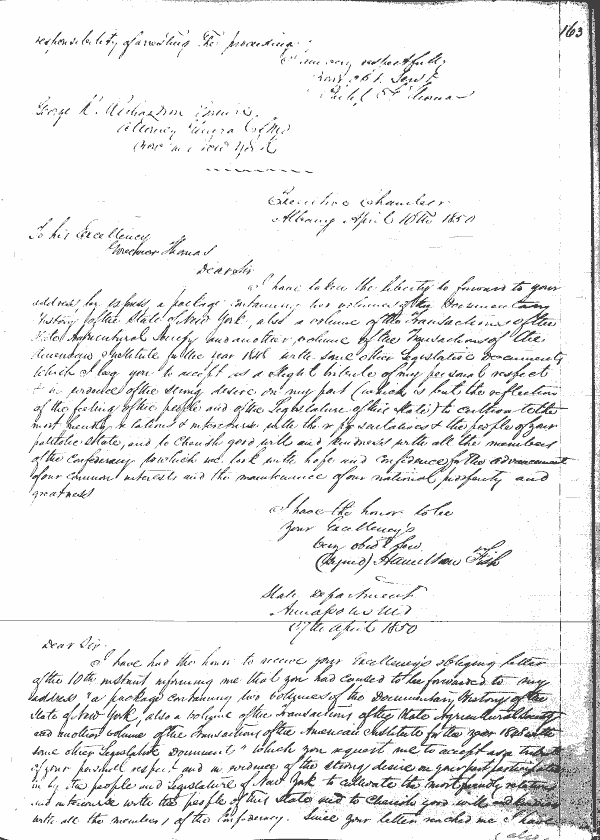 163
responsibility of arresting the proceeding
I am very respectfully
your obt. Servt
Philip F. Thomas
George R. Richardson Esquire
Attorney General of Md
now in New York
Executive Chamber
Albany April 10th 1850
To his Excellency
Governor Thomas
Dear Sir
I have taken the liberty to forward to your
address by express, a package containing two volumes of the Documentary
History of the State of New York, also a volume of the Transactions of the
State Agricultural Society and another volume of the Transactions of the
American Institute for the year 1848 with some other Legislative documents
which I beg you to accept, as a slight tribute of my personal respect
& in evidence of the strong desire on my part (which is but the reflection
of the feeling of the people and of the Legislature of this State) to cultivate the
most friendly relations & intercourse with the & the people of your
patriotic State, and to cherish good will and kindness with all the members
of the confederacy to which we look with hope and confidence for the advancement
of our common interests and the maintenance of our national prosperity and
greatness
I have the honor to be
Your Excellency's
Very obdt Serv
(Signed) Hamilton Fish
State Department
Annapolis Md
17th April 1850
Dear Sir.
I have had the honor to receive your Excellency's obliging letter
of the 10th instant informing me that you had caused to be forwarded to my
address "a package containing two volumes of the Documentary History of the
State of New York, also a volume of the Transactions of the State Agricultural Society
and another volume of the Transactions of the American Institute for the year 1848 with
some other Legislative Documents" which you request me to accept as a tribute
of your personal respect and in evidence of the strong desire on your part participated
in by the people and Legislature of New York to cultivate the most friendly relations
and intercourse with the people of this State and to cherish good will and kindness
with all the members of the Confederacy. Since your letter reached me I have